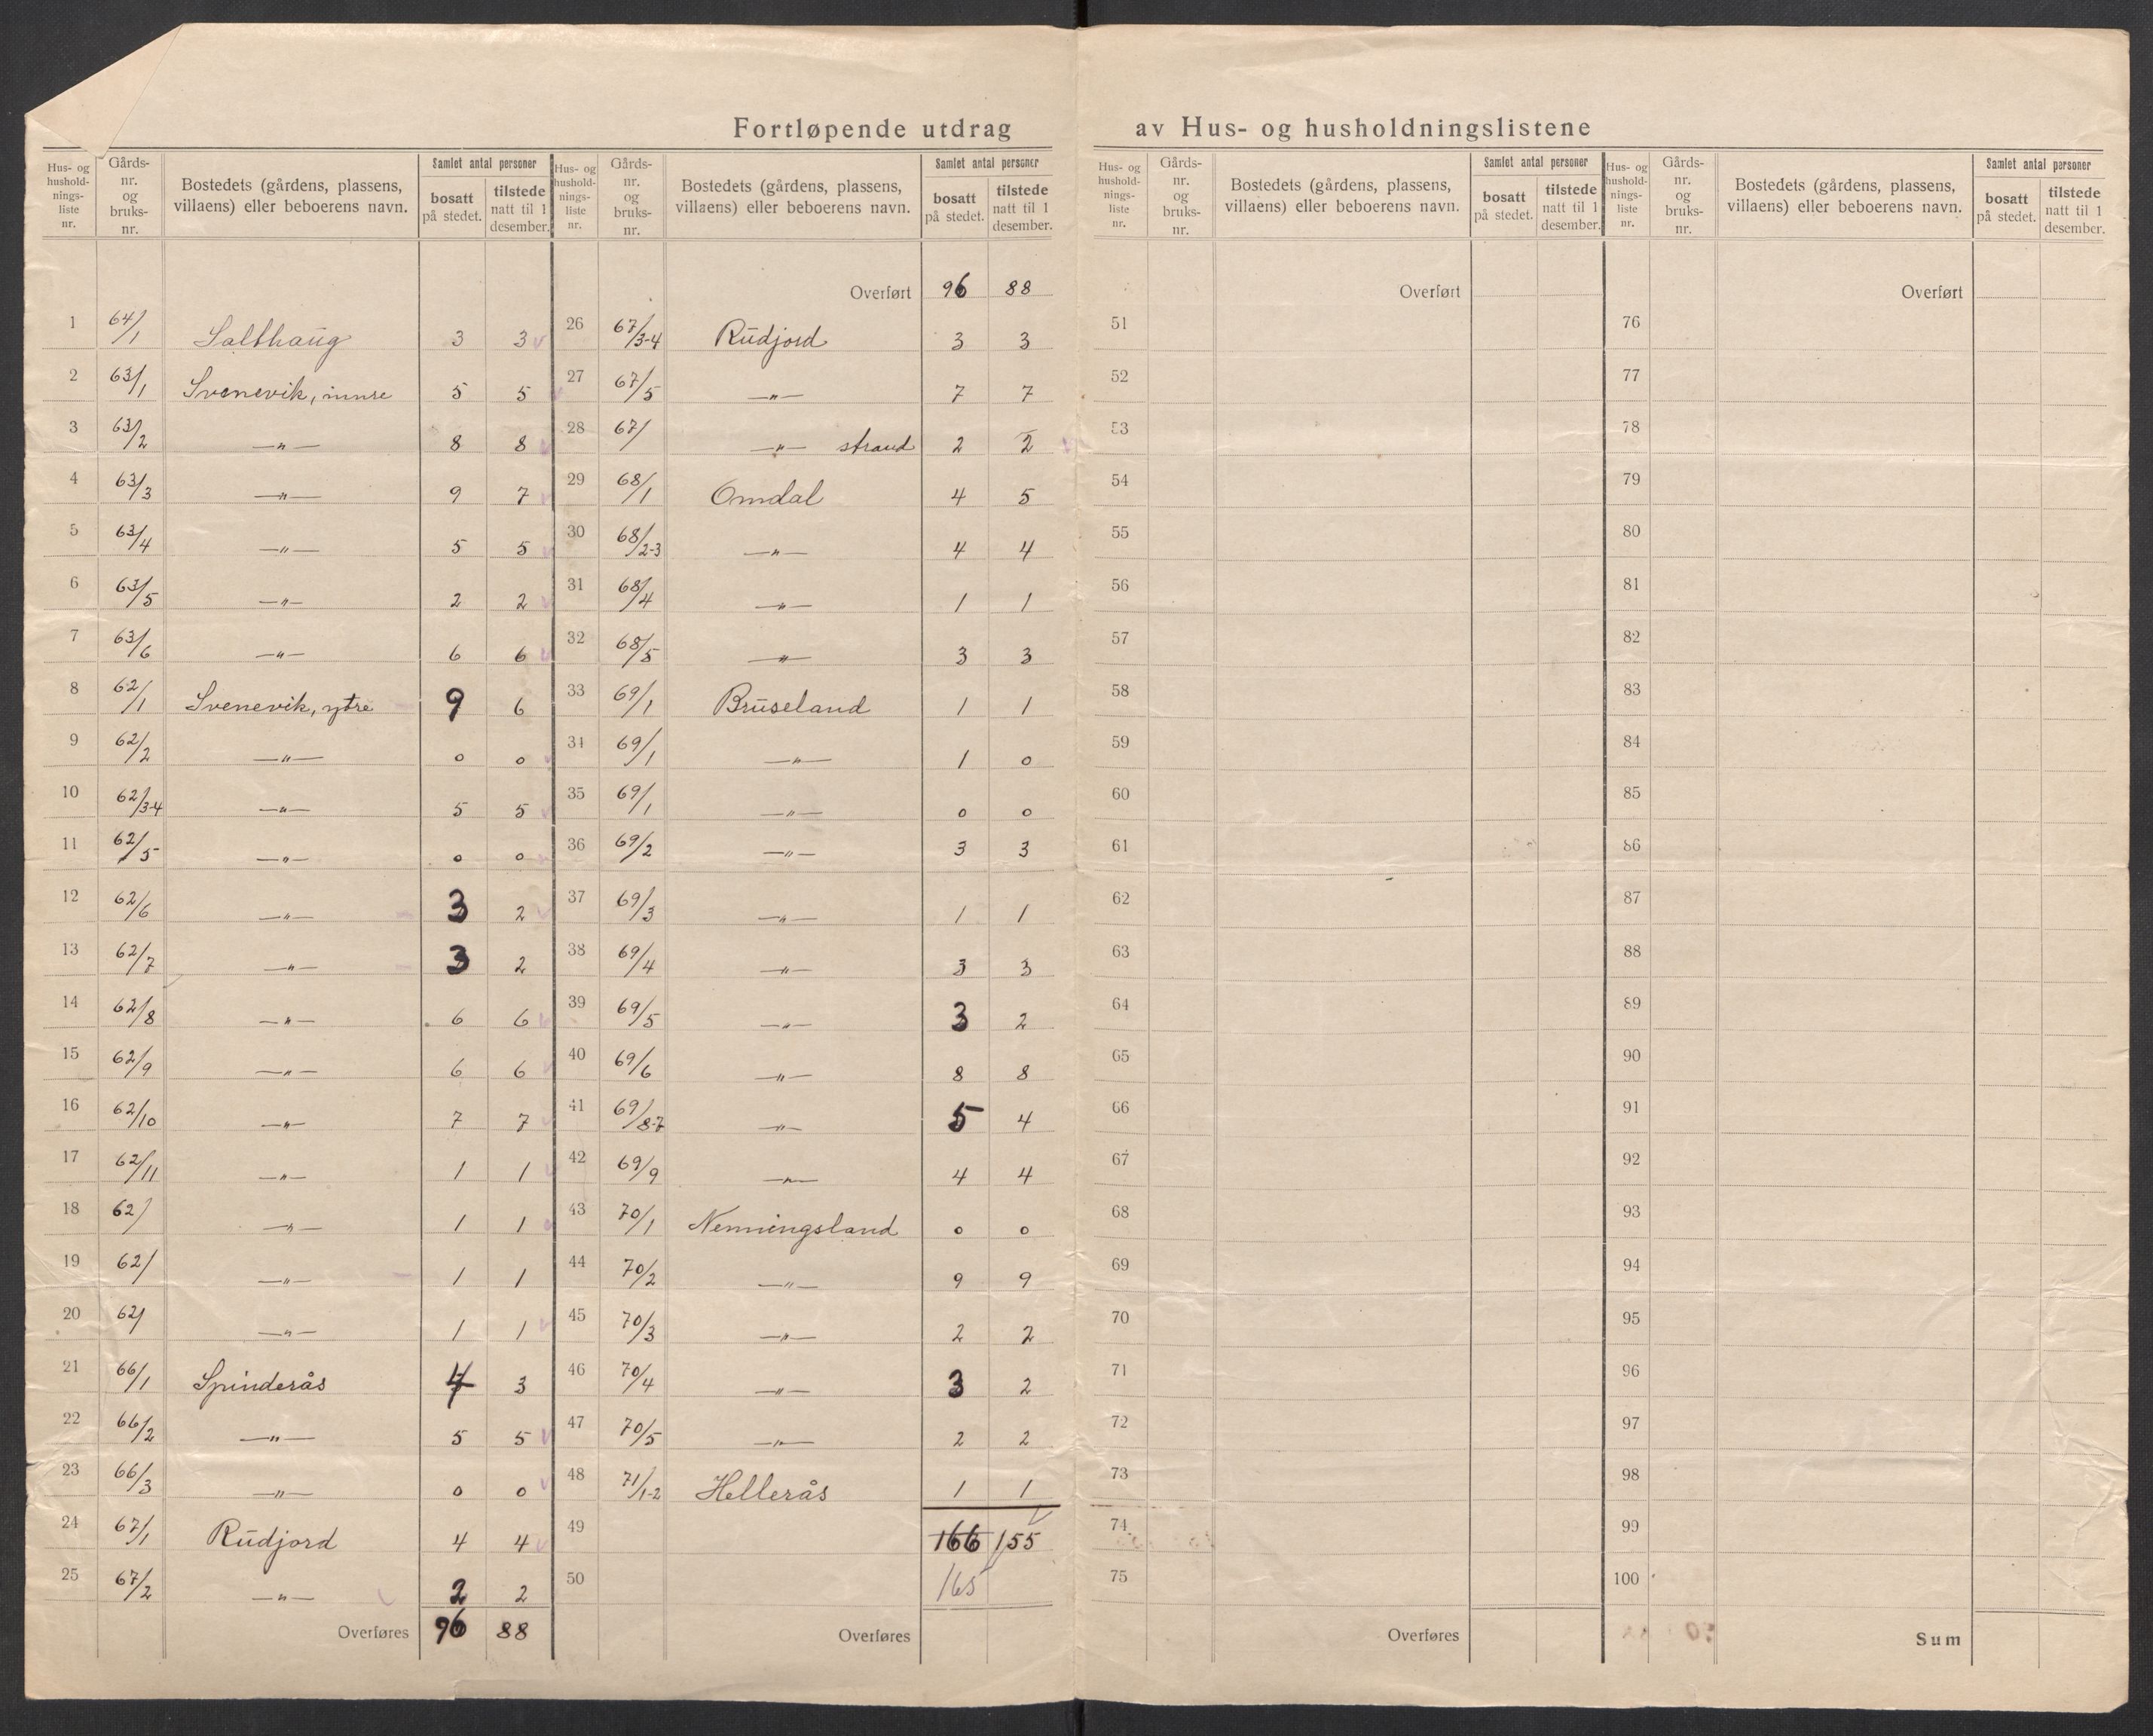 Fortløpende utdrag av Hus- og husholdningslistene
Hus- og husholdningsliste nr. | Gårdsnr. og bruksnr. | Bostedets (gårdens, plassens, villaens) eller beboerens navn. | Samlet antal personer | bosatt på stedet. | tilstede natt til 1 desember.
1 64/1 Salthaug 3 3
2 63/1 Svenevik, innre 5 5
3 63/2 —"— 8 8
4 63/3 —"— 9 7
5 63/4 —"— 5 5
6 63/5 —"— 2 2
7 63/6 —"— 6 6
8 62/1 Svenevik, ytre 9 6
9 62/2 —"— 0 0
10 62/3-4 —"— 5 5
11 62/5 —"— 0 0
12 62/6 —"— 3 2
13 62/7 —"— 3 2
14 62/8 —"— 6 6
15 62/9 —"— 6 6
16 62/10 —"— 7 7
17 62/11 —"— 1 1
18 62/ —"— 1 1
19 62/ —"— 1 1
20 62/ —"— 1 1
21 66/1 Spinderås 4 3
22 66/2 —"— 5 5
23 66/3 —"— 0 0
24 67/1 Rudjord 4 4
25 67/2 —"— 2 2
Overføres 96 88
Hus- og husholdningsliste nr. | Gårdsnr. og bruksnr. | Bostedets (gårdens, plassens, villaens) eller beboerens navn. | Samlet antal personer | bosatt på stedet. | tilstede natt til 1 desember.
Overført 96 88
26 67/3-4 Rudjord 3 3
27 67/5 —"— 7 7
28 67/ —"— strand 2 2
29 68/1 Omdal 4 5
30 68/2-3 —"— 4 4
31 68/4 —"— 1 1
32 68/5 —"— 3 3
33 69/1 Bruseland 1 1
34 69/1 —"— 1 0
35 69/1 —"— 0 0
36 69/2 —"— 3 3
37 69/3 —"— 1 1
38 69/4 —"— 3 3
39 69/5 —"— 3 2
40 69/6 —"— 8 8
41 69/8-7 —"— 5 4
42 69/9 —"— 4 4
43 70/1 Nenningsland 0 0
44 70/2 —"— 9 9
45 70/3 —"— 2 2
46 70/4 —"— 3 2
47 70/5 —"— 2 2
48 71/1-2 Hellerås 1 1
49 166 155
50 165
Overføres
Hus- og husholdningsliste nr. | Gårdsnr. og bruksnr. | Bostedets (gårdens, plassens, villaens) eller beboerens navn. | Samlet antal personer | bosatt på stedet. | tilstede natt til 1 desember.
Overført
51
52
53
54
55
56
57
58
59
60
61
62
63
64
65
66
67
68
69
70
71
72
73
74
75
Overføres
Hus- og husholdningsliste nr. | Gårdsnr. og bruksnr. | Bostedets (gårdens, plassens, villaens) eller beboerens navn. | Samlet antal personer | bosatt på stedet. | tilstede natt til 1 desember.
Overført
76
77
78
79
80
81
82
83
84
85
86
87
88
89
90
91
92
93
94
95
96
97
98
99
100
Sum